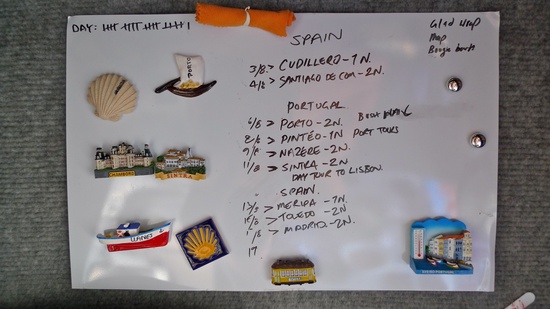 DAY:
SPAIN
3/8 > CUDILLERO - 1N.
4/8 > SANTIAGO DE COM - 2N.
PORTUGAL
6/8 > PORTO - 2N.
8/8 > PINTÉO - 1N PORT TOURS
9/8 > NAZERE - 2N.
11/8 > SINTRA - 2N.
DAY TOUR TO LISBON.
SPAIN.
> MERIDA - 1N.
> TOLEDO - 2N
> MADRID - 2N.
17
Glad wrap
Map
PORTO
CHAMBORD
SINTRA
LLANES